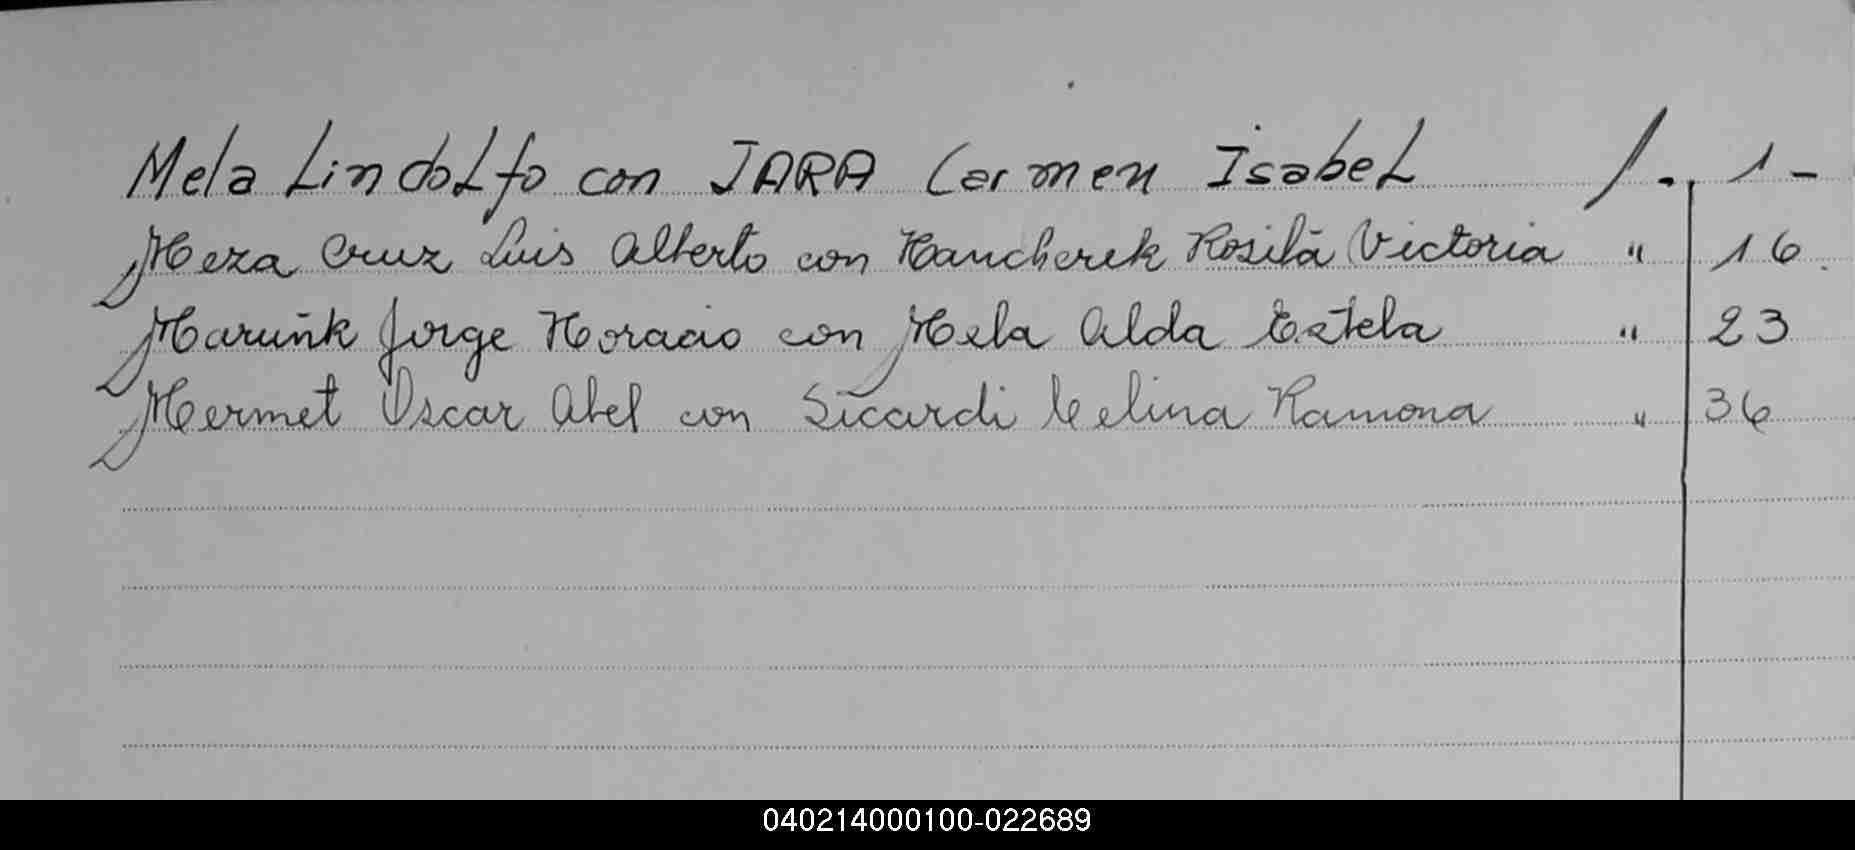 Mela Lindolfo con JARA Carmen Isabel /. 1-
Meza Cruz Luis Alberto con Hancherek Rosita Victoria " 16.
Maruñk Jorge Horacio con Mela Alda Estela " 23
Mermet Oscar Abel con Sicardi Celina Ramona " 36
040214000100-022689